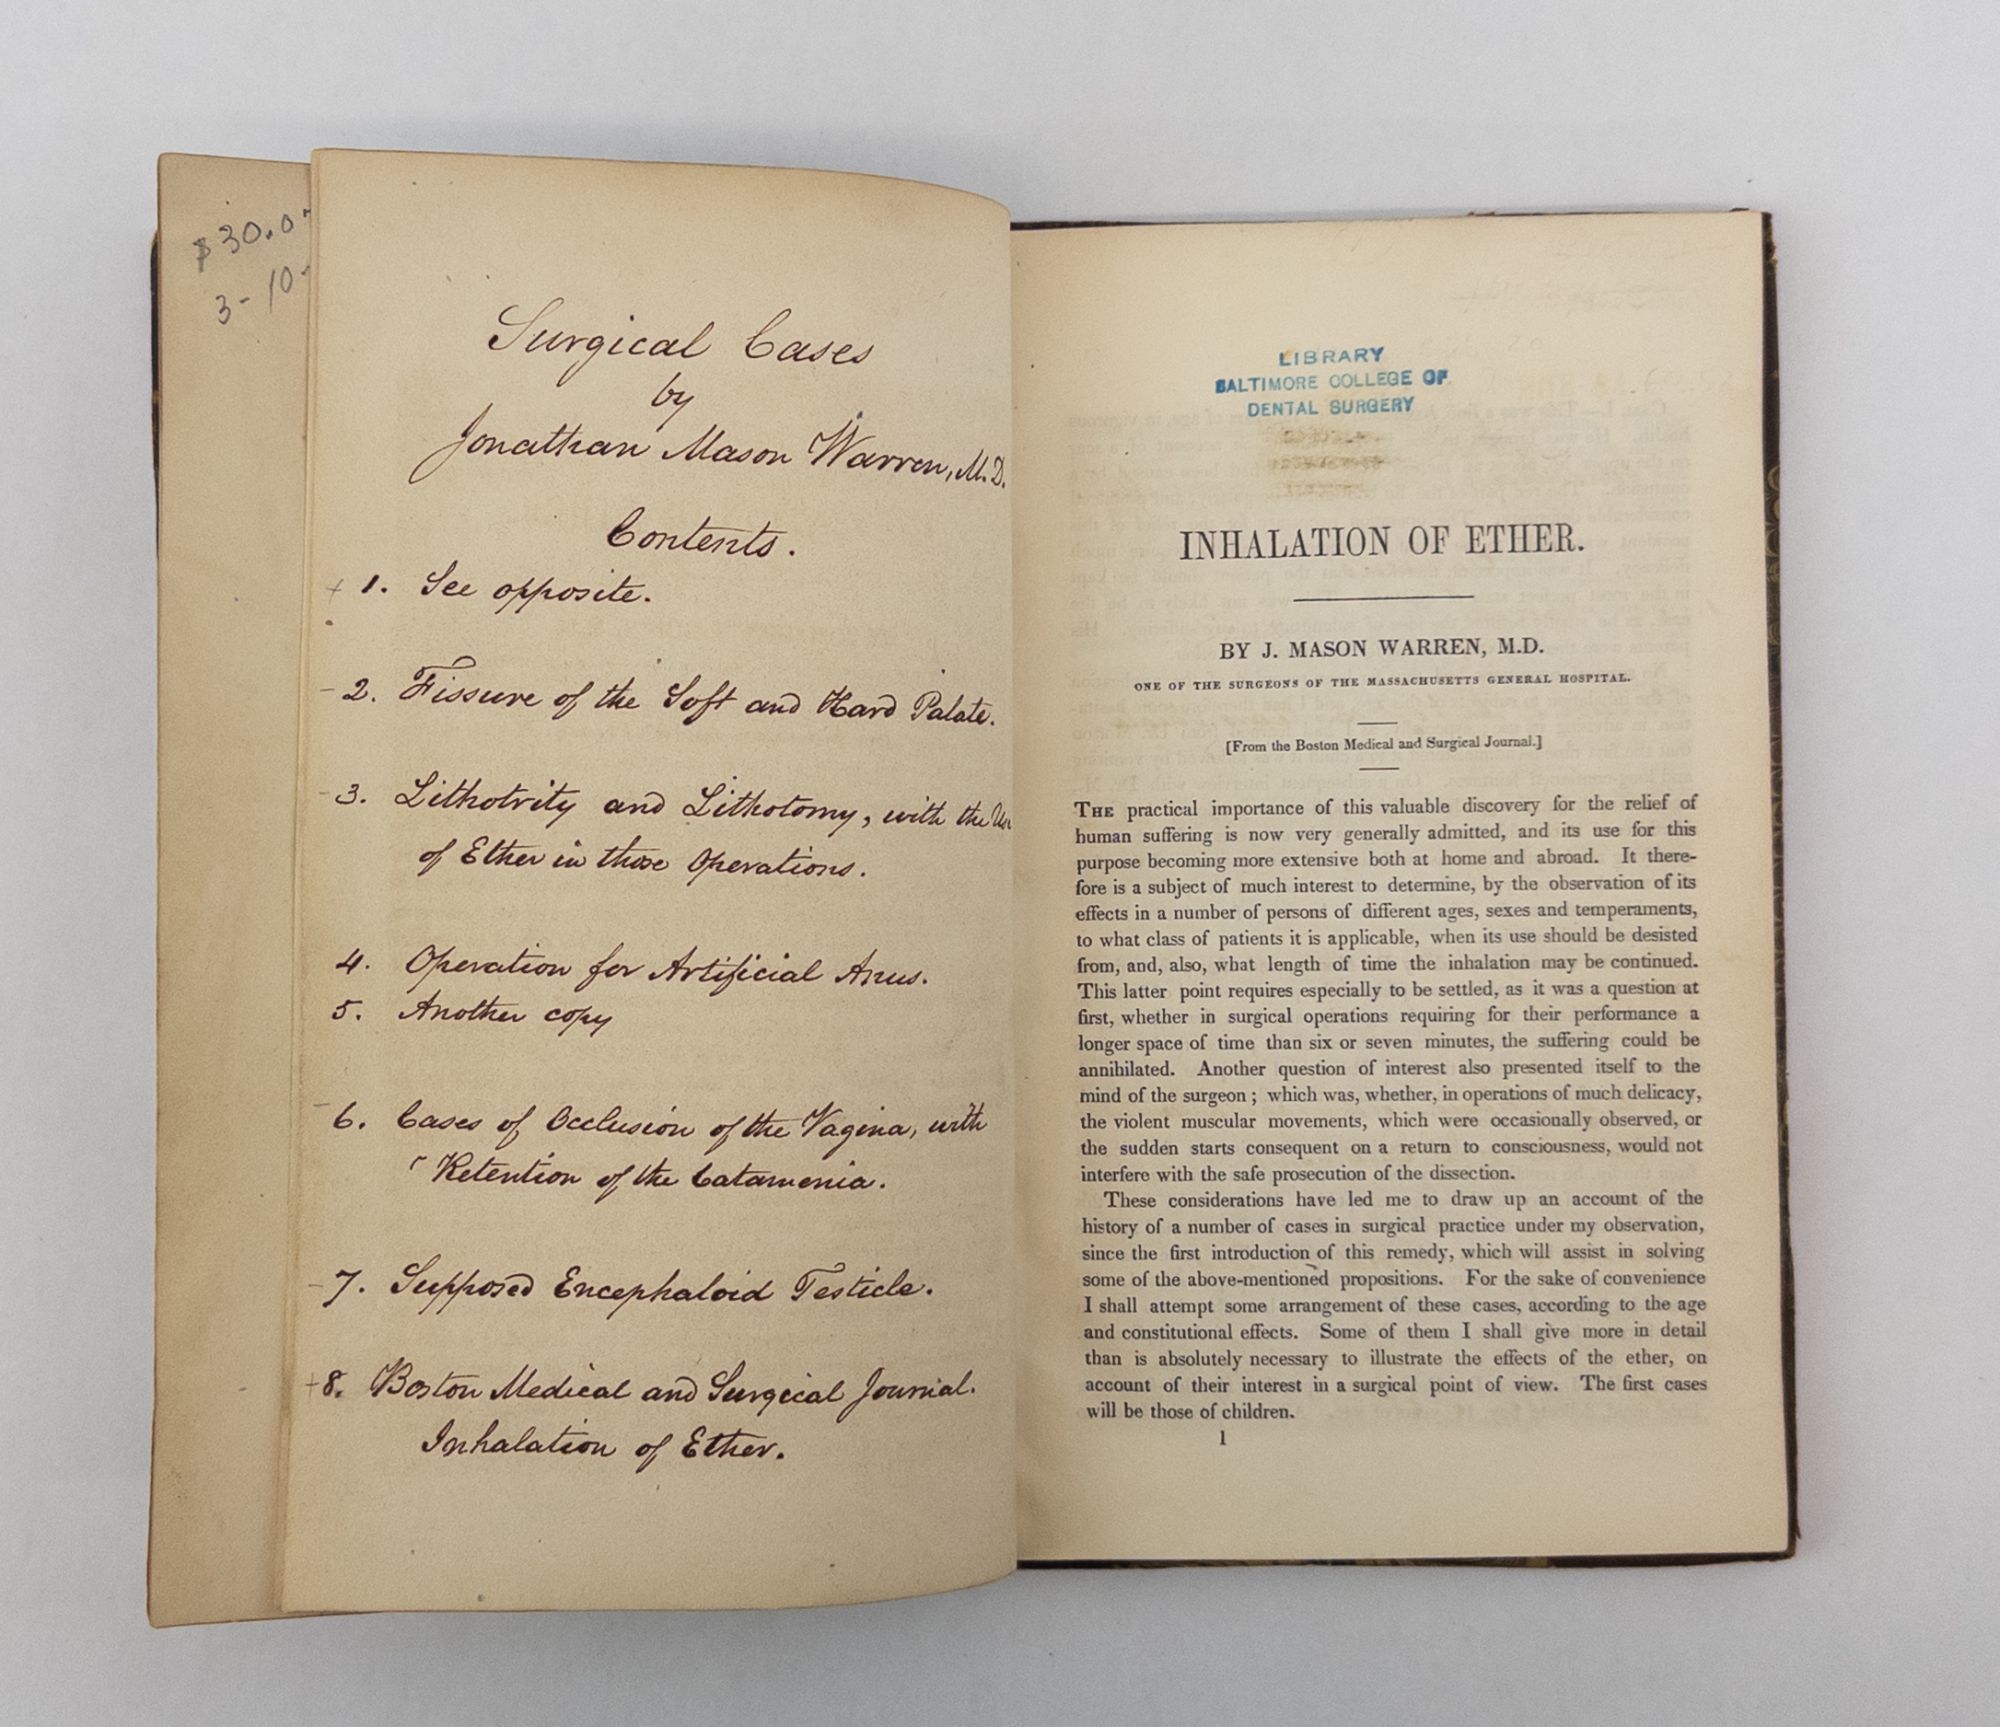 $30.0
3-10-
Surgical Cases
by
Jonathan Mason Warren, M.D.
Contents.
+ 1. See opposite.
- 2. Fissure of the Soft and Hard Palate.
- 3. Lithotrity and Lithotomy, with the Use
of Ether in those Operations.
4. Operation for Artificial Anus.
5. Another copy
- 6. Cases of Occlusion of the Vagina, with
Retention of the Catamenia.
- 7. Supposed Encephaloid Testicle.
+ 8. Boston Medical and Surgical Journal.
Inhalation of Ether.
LIBRARY
BALTIMORE COLLEGE OF
DENTAL SURGERY
INHALATION OF ETHER.
BY J. MASON WARREN, M.D.
ONE OF THE SURGEONS OF THE MASSACHUSETTS GENERAL HOSPITAL.
[From the Boston Medical and Surgical Journal.]
THE practical importance of this valuable discovery for the relief of
human suffering is now very generally admitted, and its use for this
purpose becoming more extensive both at home and abroad. It there-
fore is a subject of much interest to determine, by the observation of its
effects in a number of persons of different ages, sexes and temperaments,
to what class of patients it is applicable, when its use should be desisted
from, and, also, what length of time the inhalation may be continued.
This latter point requires especially to be settled, as it was a question at
first, whether in surgical operations requiring for their performance a
longer space of time than six or seven minutes, the suffering could be
annihilated. Another question of interest also presented itself to the
mind of the surgeon ; which was, whether, in operations of much delicacy,
the violent muscular movements, which were occasionally observed, or
the sudden starts consequent on a return to consciousness, would not
interfere with the safe prosecution of the dissection.
These considerations have led me to draw up an account of the
history of a number of cases in surgical practice under my observation,
since the first introduction of this remedy, which will assist in solving
some of the above-mentioned propositions. For the sake of convenience
I shall attempt some arrangement of these cases, according to the age
and constitutional effects. Some of them I shall give more in detail
than is absolutely necessary to illustrate the effects of the ether, on
account of their interest in a surgical point of view. The first cases
will be those of children.
1